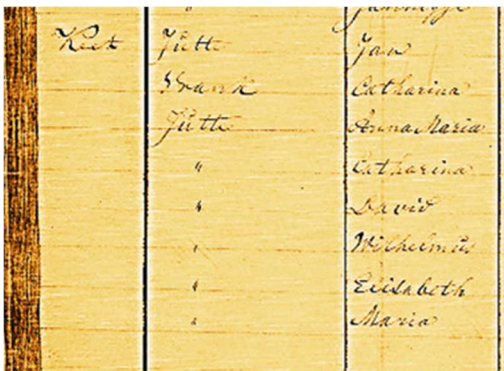 Keet Jütte Jan
Frank Catharina
Jütte Anna Maria
" Catharina
" David
" Wilhelmus
" Elisabeth
" Maria